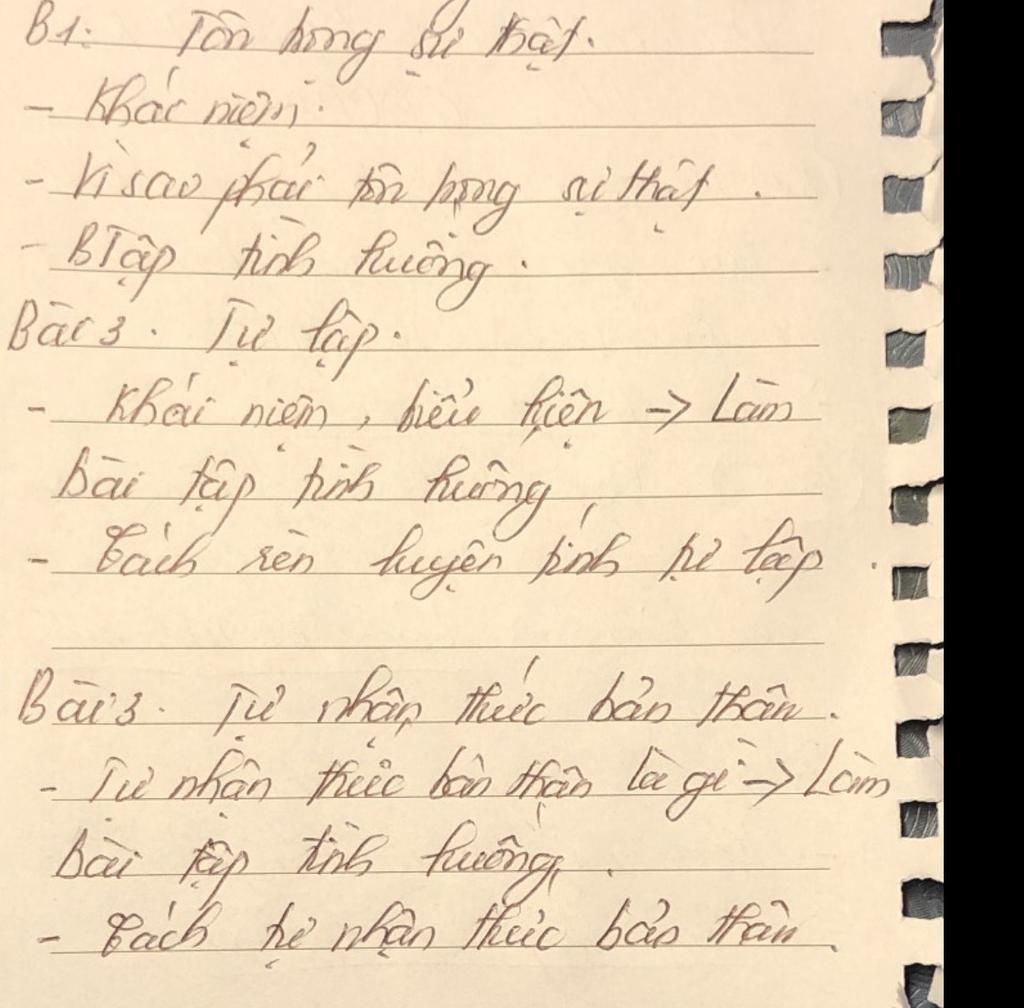 B1: Tôn trọng sự thật.
- Khái niệm.
- Vì sao phải tôn trọng sự thật.
- BTập tình huống.
Bài 3. Tự lập.
- Khái niệm, biểu hiện -> Làm
bài tập tình huống
- Cách rèn luyện tính tự lập.
Bài 3. Tự nhận thức bản thân.
- Tự nhận thức bản thân là gì -> Làm
bài tập tình huống.
- Cách tự nhận thức bản thân.